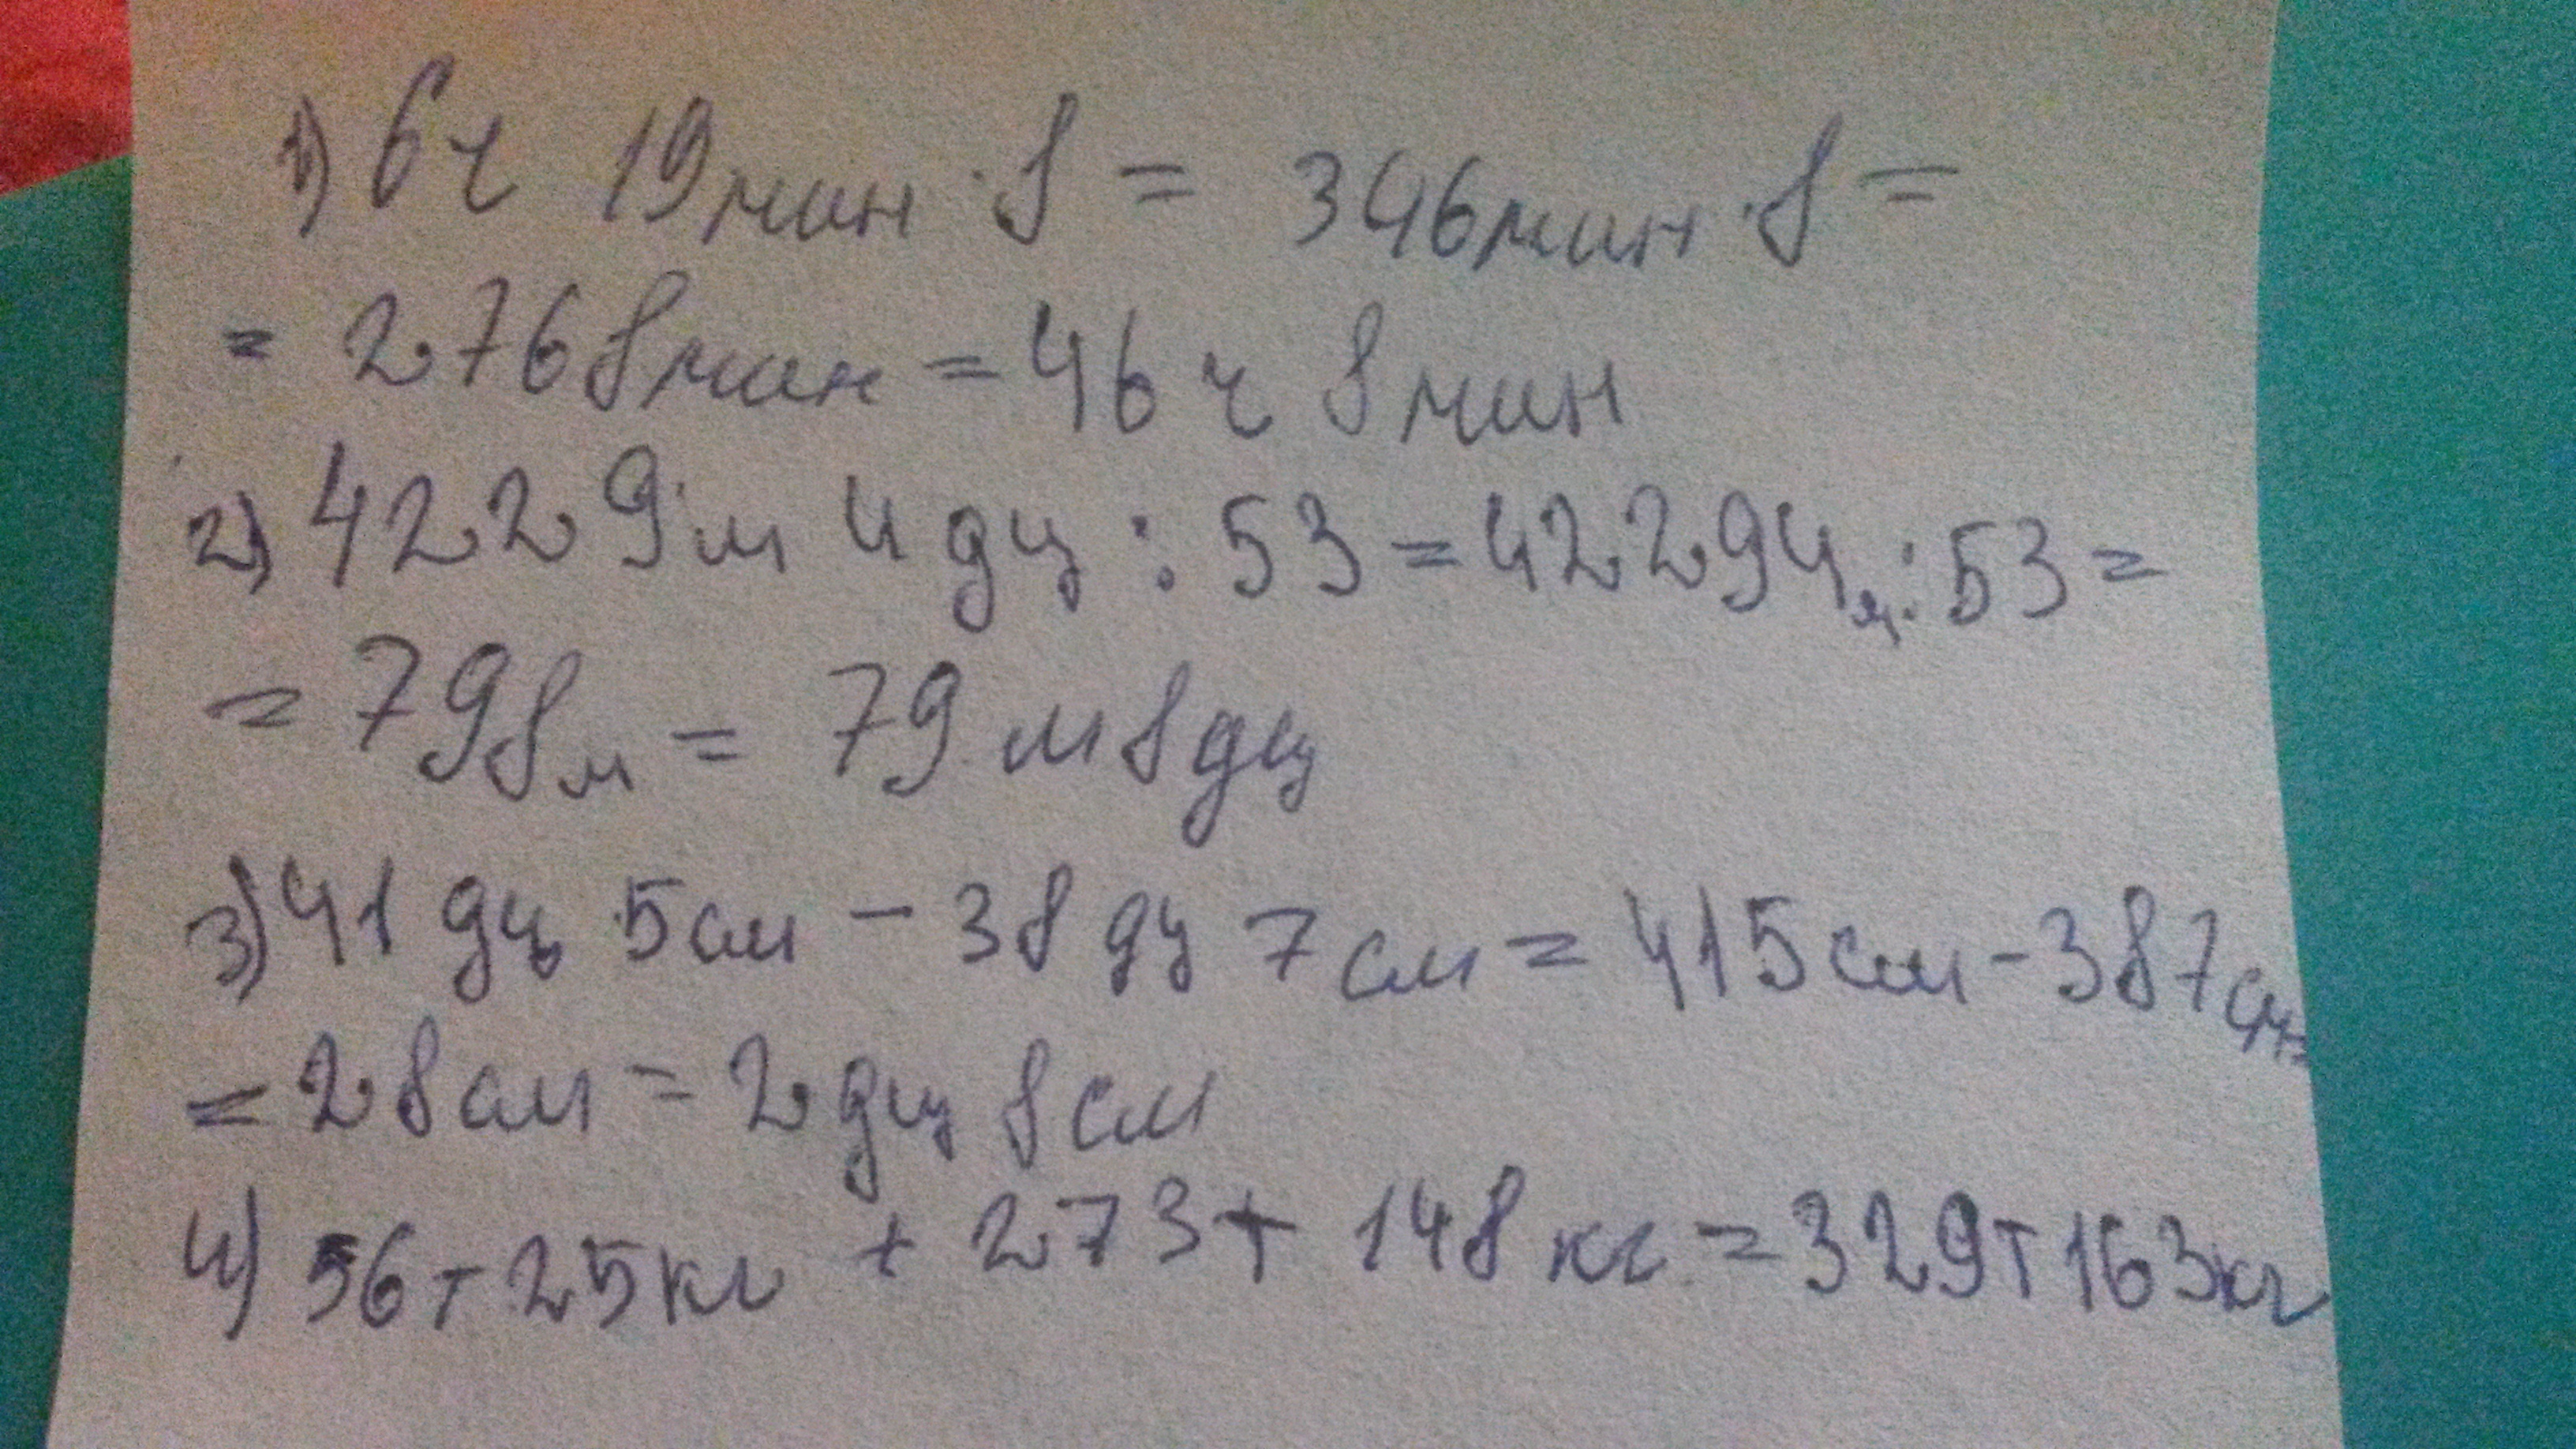 1) 6 ч 19 мин · 8 = 346 мин · 8 =
= 2768 мин = 46 ч 8 мин
2) 4229 м 4 дц : 53 = 42294 м : 53 =
= 798 м = 79 м 8 дц
3) 41 дц 5 см - 38 дц 7 см = 415 см - 387 см =
= 28 см = 2 дц 8 см
4) 56 т 25 кг + 273 т 148 кг = 329 т 163 кг